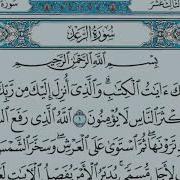 سُورَةُ
ثالث عشر
سُورَةُ الرَّعْدِ
بِسْمِ ٱللَّهِ ٱلرَّحْمَـٰنِ ٱلرَّحِيمِ
كَ ءَايَـٰتُ ٱلْكِتَـٰبِ ۗ وَٱلَّذِىٓ أُنزِلَ إِلَيْكَ مِن رَّبِّكَ
كْثَرَ ٱلنَّاسِ لَا يُؤْمِنُونَ ١ ٱللَّهُ ٱلَّذِى رَفَعَ
تَرَوْنَهَا ۖ ثُمَّ ٱسْتَوَىٰ عَلَى ٱلْعَرْشِ ۖ وَسَخَّرَ ٱلشَّمْسَ
لِأَجَلٍ مُّسَمًّى ۚ يُدَبِّرُ ٱلْأَمْرَ يُفَصِّلُ ٱلْـَٔايَـٰتِ